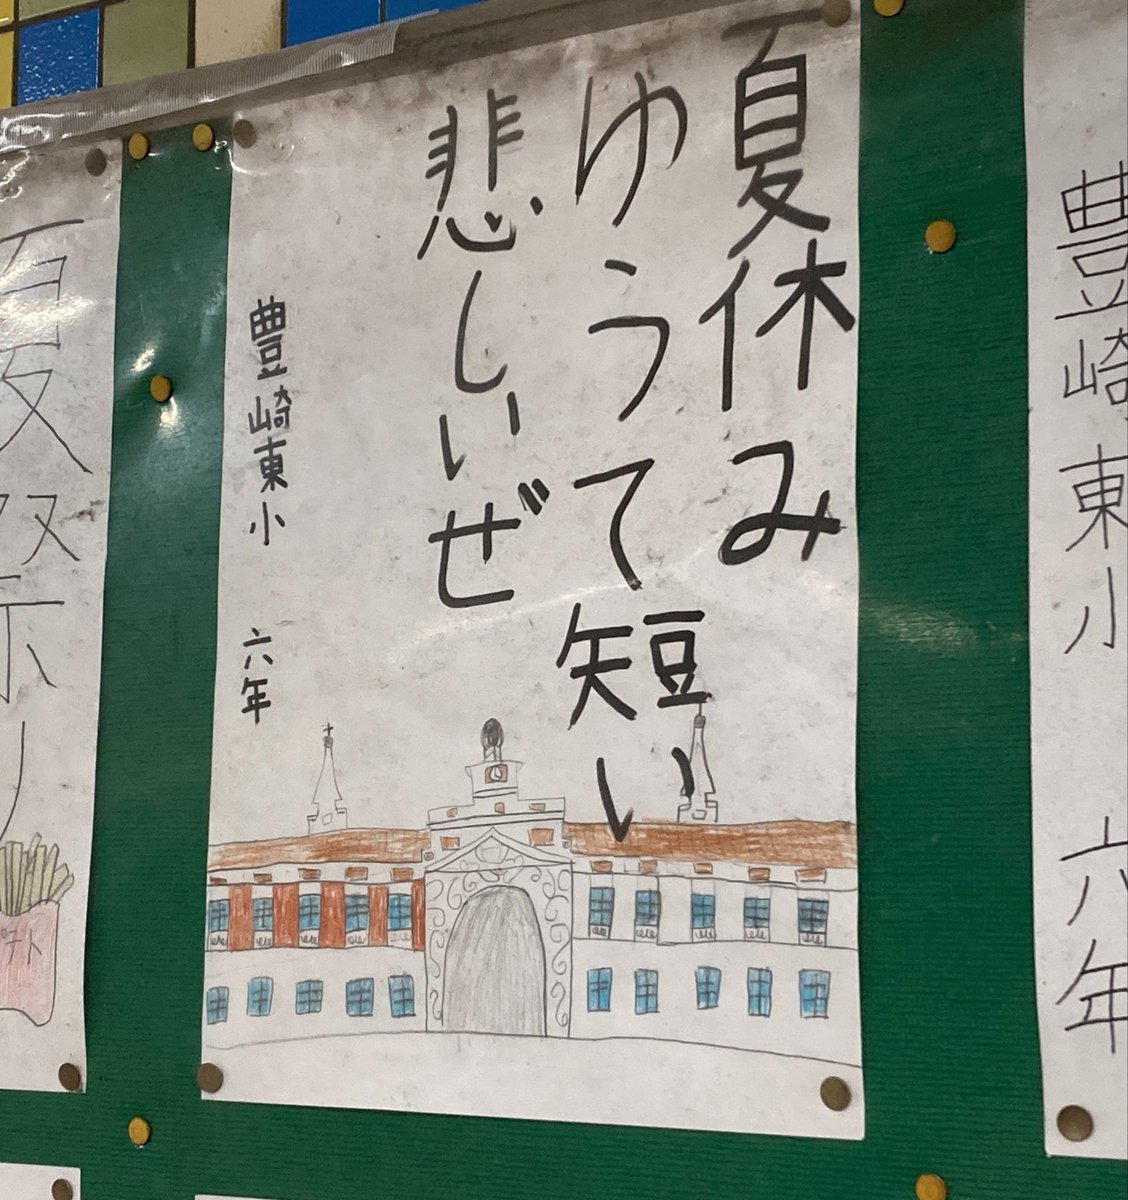 豊崎東小　六年
夏休み
ゆうて短い
悲しいぜ
豊崎東小　六年
夏祭り
ポテト